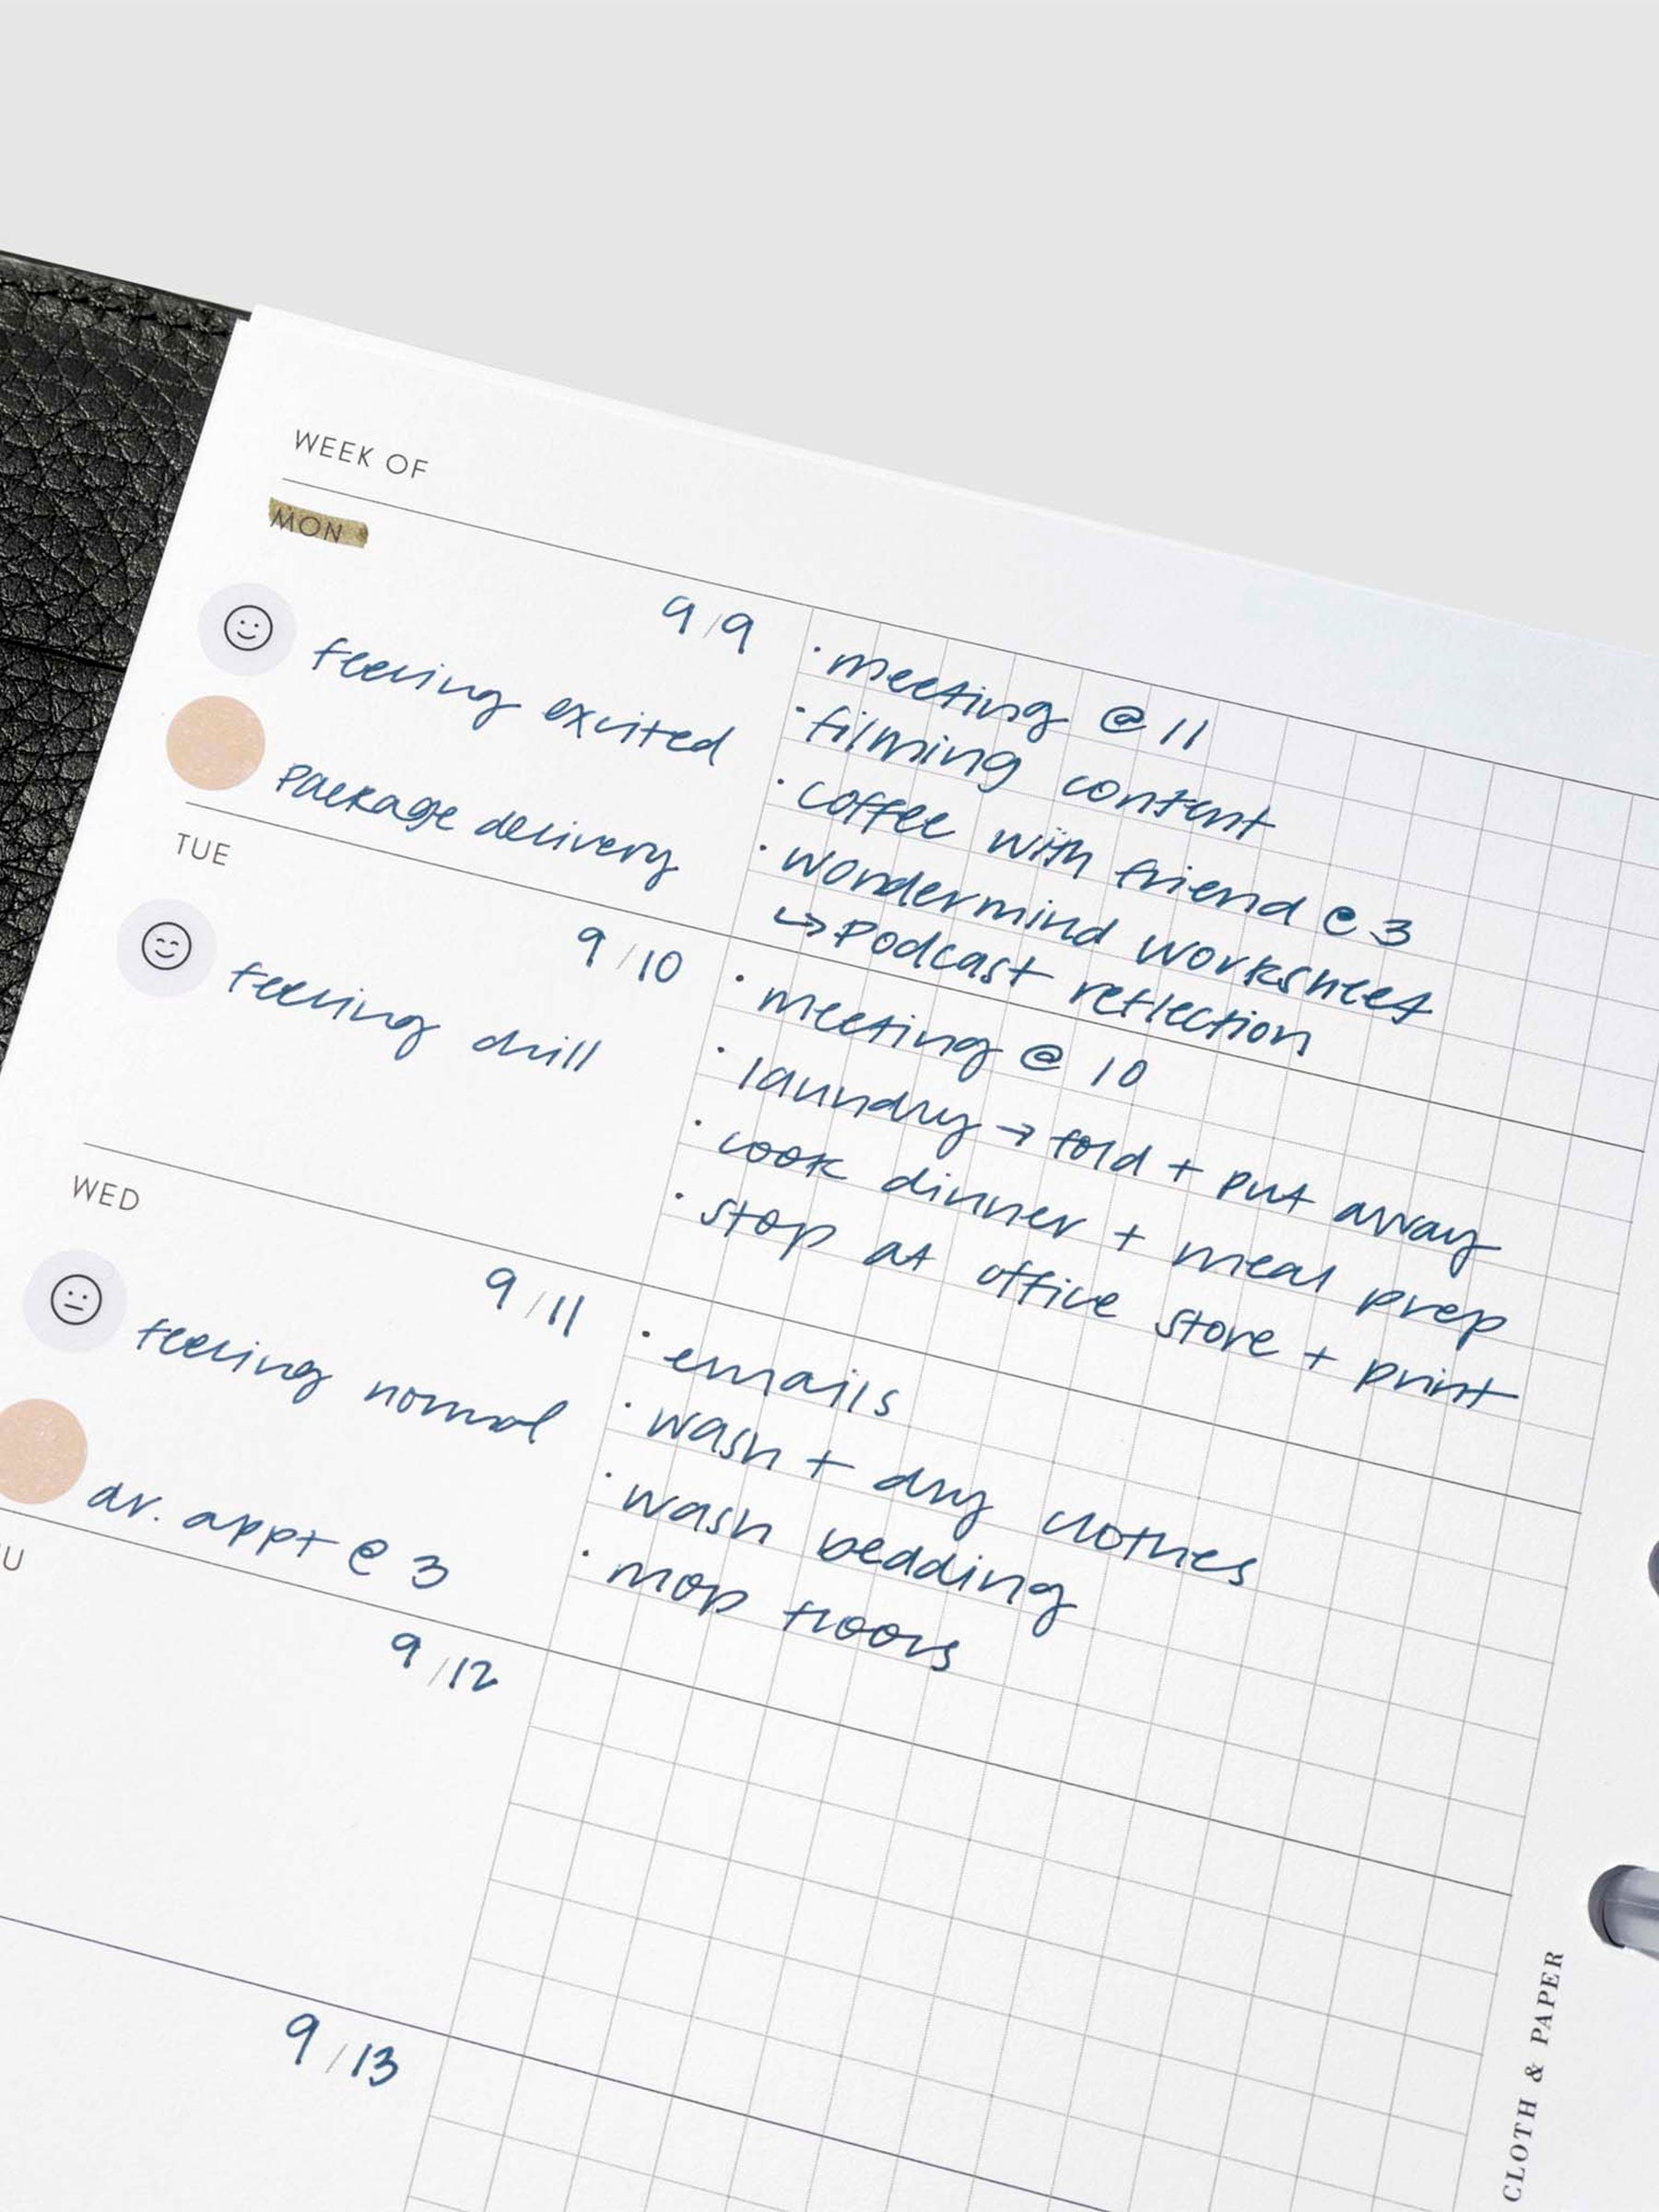 WEEK OF
MON
9/9
feeling excited
package delivery
· meeting @ 11
· filming content
· coffee with friend @ 3
· wondermind worksheet
↳ podcast reflection
TUE
9/10
feeling chill
· meeting @ 10
· laundry → fold + put away
· cook dinner + meal prep
· stop at office store + print
WED
9/11
feeling normal
dr. appt @ 3
· emails
· wash + dry clothes
· wash bedding
· mop floors
U
9/12
9/13
CLOTH & PAPER